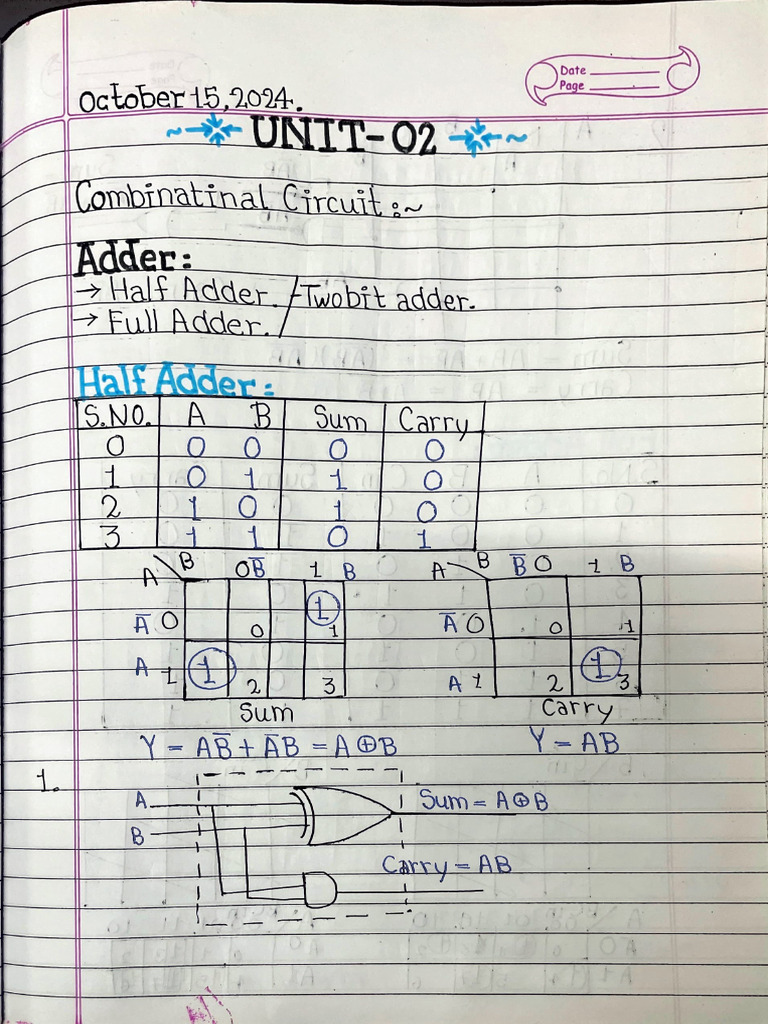 Date
Page
October 15, 2024.
UNIT-02
Combinatinal Circuit :~
Adder:
→ Half Adder. / Twobit adder.
→ Full Adder. /
Half Adder:
S.NO. A B Sum Carry
0 0 0 0 0
1 0 1 1 0
2 1 0 1 0
3 1 1 0 1
A \ B 0B̅ 1 B
A̅ 0 0 1 1
A 1 1 2 3
Sum
A \ B B̅ 0 1 B
A̅ 0 0 1
A 1 2 1 3
Carry
Y = AB̅ + A̅B = A⊕B
Y = AB
1.
A
B
Sum = A⊕B
Carry = AB